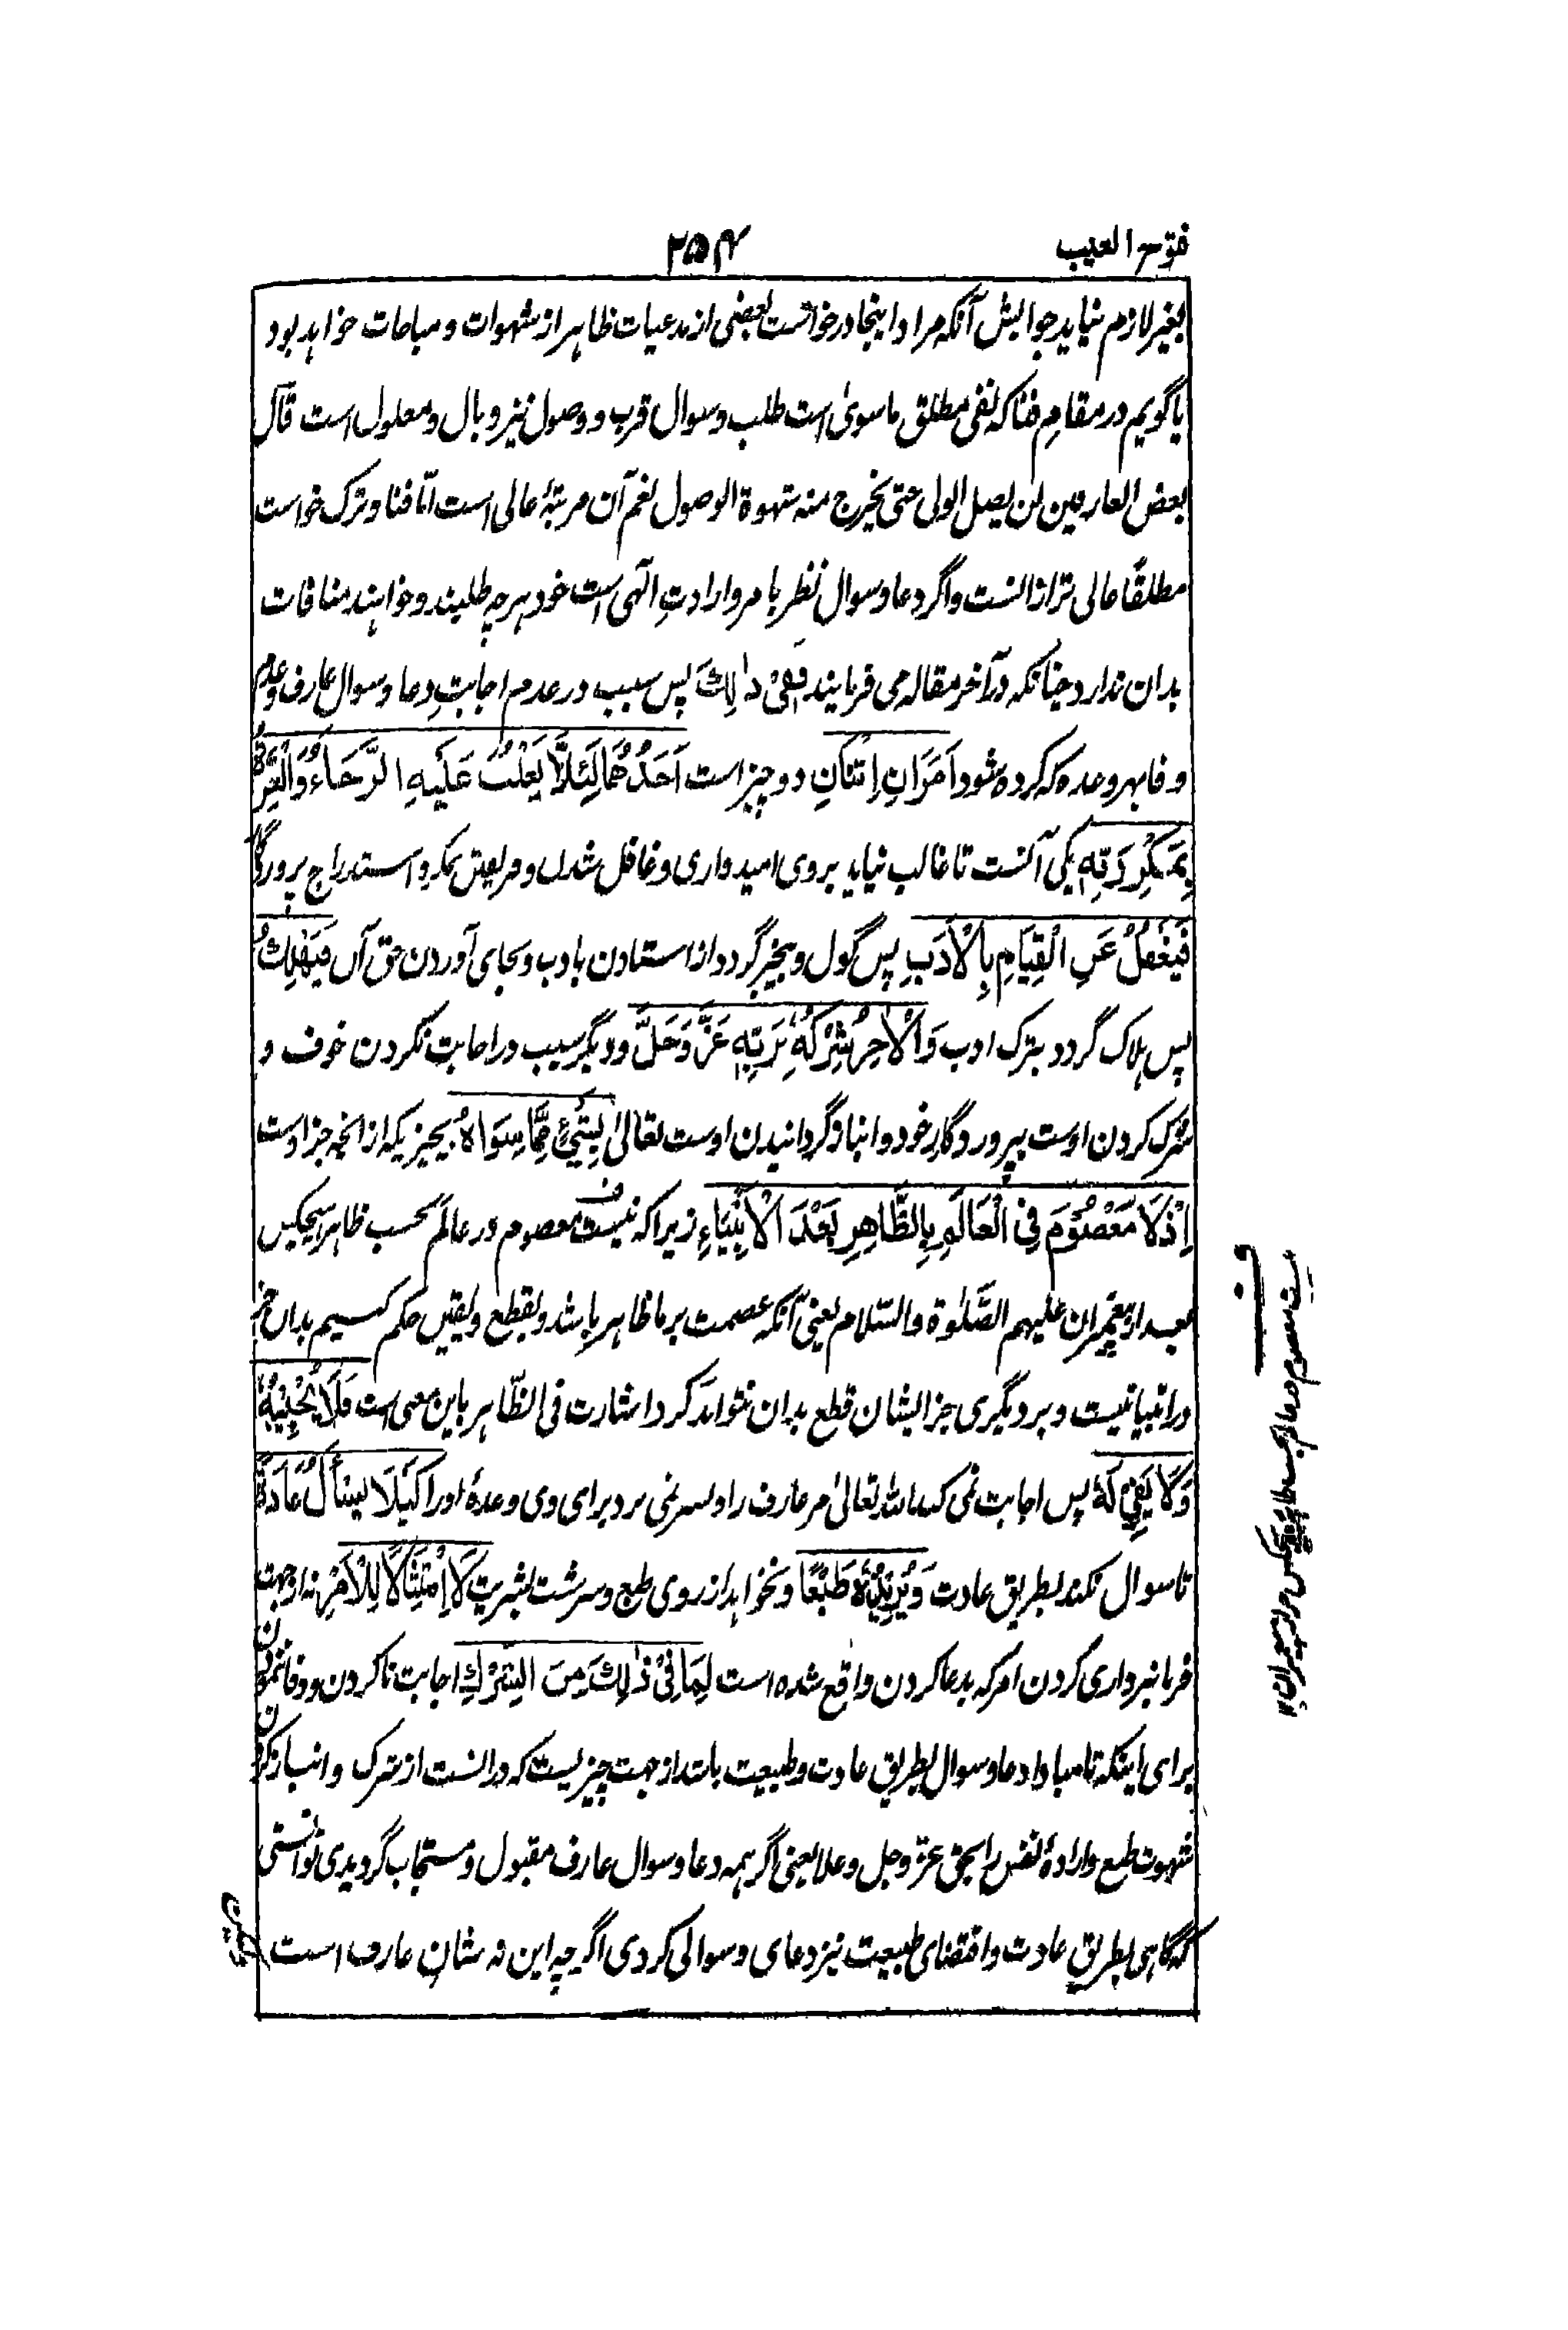 فتوح الغیب
۲۵۴
بغیر لازم نیاید جوابش آنکه مراد اینجا درخواست بعضی از مدعیات ظاہر از شہوات و مباحات خواہد بود
یا گویم در مقامِ فنا که نفی مطلق ماسویٰ است طلب و سوال قرب و وصول نیز وبال و معلول است قال
بعض العارفین لن یصل الولی حتی یخرج منه شهوة الوصول نعم آن مرتبۂ عالی است امّا فنا و ترک خواست
مطلقًا عالی تر ازانست و اگر دعا و سوال نظر بامر و ارادتِ الٰهی است خود ہرچه طلبند و خواہند منافات
بدان ندارد چنانکه در آخر مقاله می فرمایند فَفِیْ ذٰلِكَ پس سبب در عدم اجابتِ دعا و سوال عارف و عدم
وفا بہر وعدہ که کرده شود اَمْرَانِ اِثْنَانِ دو چیز است اَحَدُهُمَا لِئَلَّا یَغْلُبَ عَلَیْهِ الرَّجَاءُ وَالْغِرَّةُ
بِمَكْرِ رَبِّهٖ یکی آنست تا غالب نیاید بروی امیدواری و غافل شدن و فریفتن بمکر و استدراج پروردگار
فَیَغْفُلُ عَنِ الْقِیَامِ بِالْاَدَبِ پس گول و بیخبر گردد از استادن بادب و بجای آوردن حق آں فَیَهْلِكُ
پس ہلاک گردد بترک ادب وَالْاٰخِرُ شِرْكُهٗ بِرَبِّهٖ عَزَّ وَجَلَّ و دیگر سبب در اجابت نکردن خوف و
شرک کردن اوست بپروردگار خود و انباز گردانیدن اوست تعالیٰ بِشَیْءٍ مِّمَّا سِوَاهُ بچیزیکه از انچه جز اوست
اِذْ لَا مَعْصُوْمَ فِی الْعَالَمِ بِالظَّاهِرِ بَعْدَ الْاَنْبِیَاءِ زیرا که نیست معصوم در عالم بحسب ظاہر ہیچکس
بعد از پیغمبران علیهم الصَّلٰوة والسّلام یعنی آنکه عصمت بر ما ظاہر باشد و بقطع و یقین حکم کنیم بداں جز
در انبیا نیست و بر دیگری جز ایشان قطع بدان نتواند کرد اشارت فی الظّاہر باین معنی است فَلَا یُجِیْبُهٗ
وَلَا یَفِیْ لَهٗ پس اجابت نمی کند اللہ تعالیٰ مر عارف را و بسر نمی برد برای وی وعدۂ او را كَیْلَا یَسْأَلَ عَادَةً
تا سوال نکند بطریق عادت وَیُرِیْدُهٗ طَبْعًا و نخواہد از روی طبع و سرشت بشریت لَا اِمْتِثَالًا لِلْاَمْرِ نه از جهت
فرمانبرداری کردن امر که بدعا کردن واقع شده است لِمَا فِیْ ذٰلِكَ مِنَ الشِّرْكِ اجابت ناکردن و وفا نمودن
برای اینکه تا مبادا دعا و سوال بطریق عادت و طبیعت باشد از جهت چیزیست که در انست از شرک و انباز کردن
شہوت طبع و ارادۂ نفس را بحق عزّ وجل و علا یعنی اگر ہمه دعا و سوال عارف مقبول و مستجاب گردیدی توانستی
که گاہی بطریقِ عادت و اقتضای طبیعت نیز دعای و سوالی کردی اگرچه این نه شان عارف است
ف
نیست معصوم در عالم بحسب ظاہر ہیچکس جز از پیغمبران ۱۲